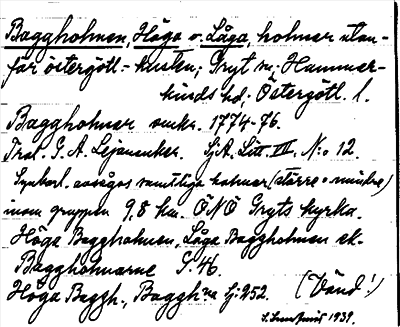 Baggholmen, Höga o. Låga, holmar utan-
för östergötl.- kusten; Gryt sn; Hammar-
kinds hd; Östergötl. l.
Baggholmar omkr. 1774-76.
Trol. G. A. Lejonanker. SjA. Litt. III, N:o 12.
Synbarl. avsågos samtliga holmar (större o mindre)
inom gruppen 9,8 km. ÖNÖ Gryts kyrka.
Höga Baggholmen, Låga Baggholmen ek.
Baggholmarne S. 46.
Höga Baggh., Baggh:na Sj: 252. (Vänd!)
1939.